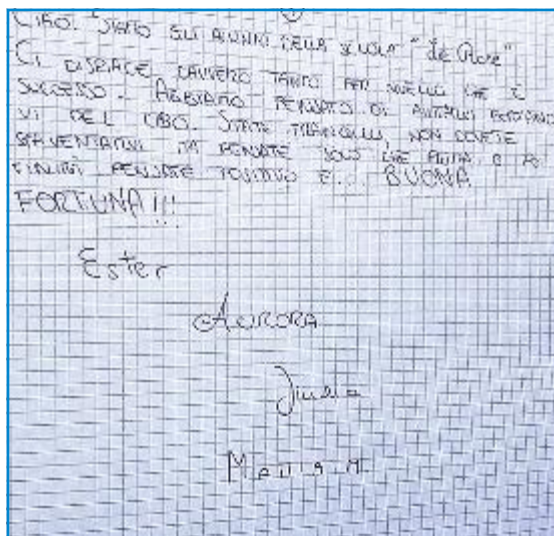 CIAO. SIAMO GLI ALUNNI DELLA SCUOLA "De Rose"
CI DISPIACE DAVVERO TANTO PER QUELLO CHE È
SUCCESSO. ABBIAMO PENSATO DI AIUTARVI
VI DEL CIBO. STATE TRANQUILLI, NON DOVETE
SPAVENTARVI MA PENSATE SOLO CHE PRIMA O POI
FINIRÀ PENSATE POSITIVO E... BUONA
FORTUNA!!!
Ester
AURORA
Giulia